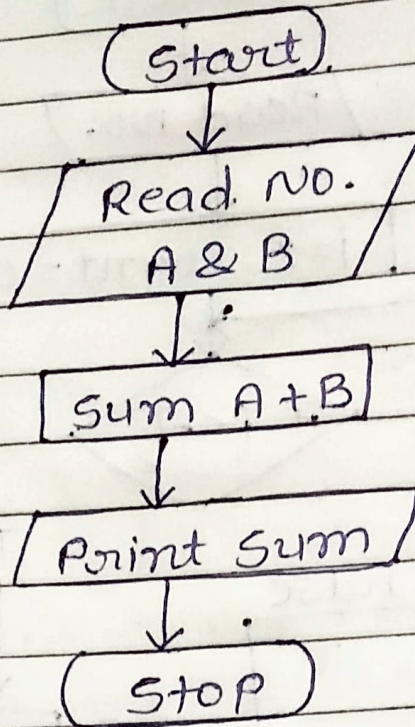 Start
Read No.
A & B
Sum A+B
Print Sum
Stop